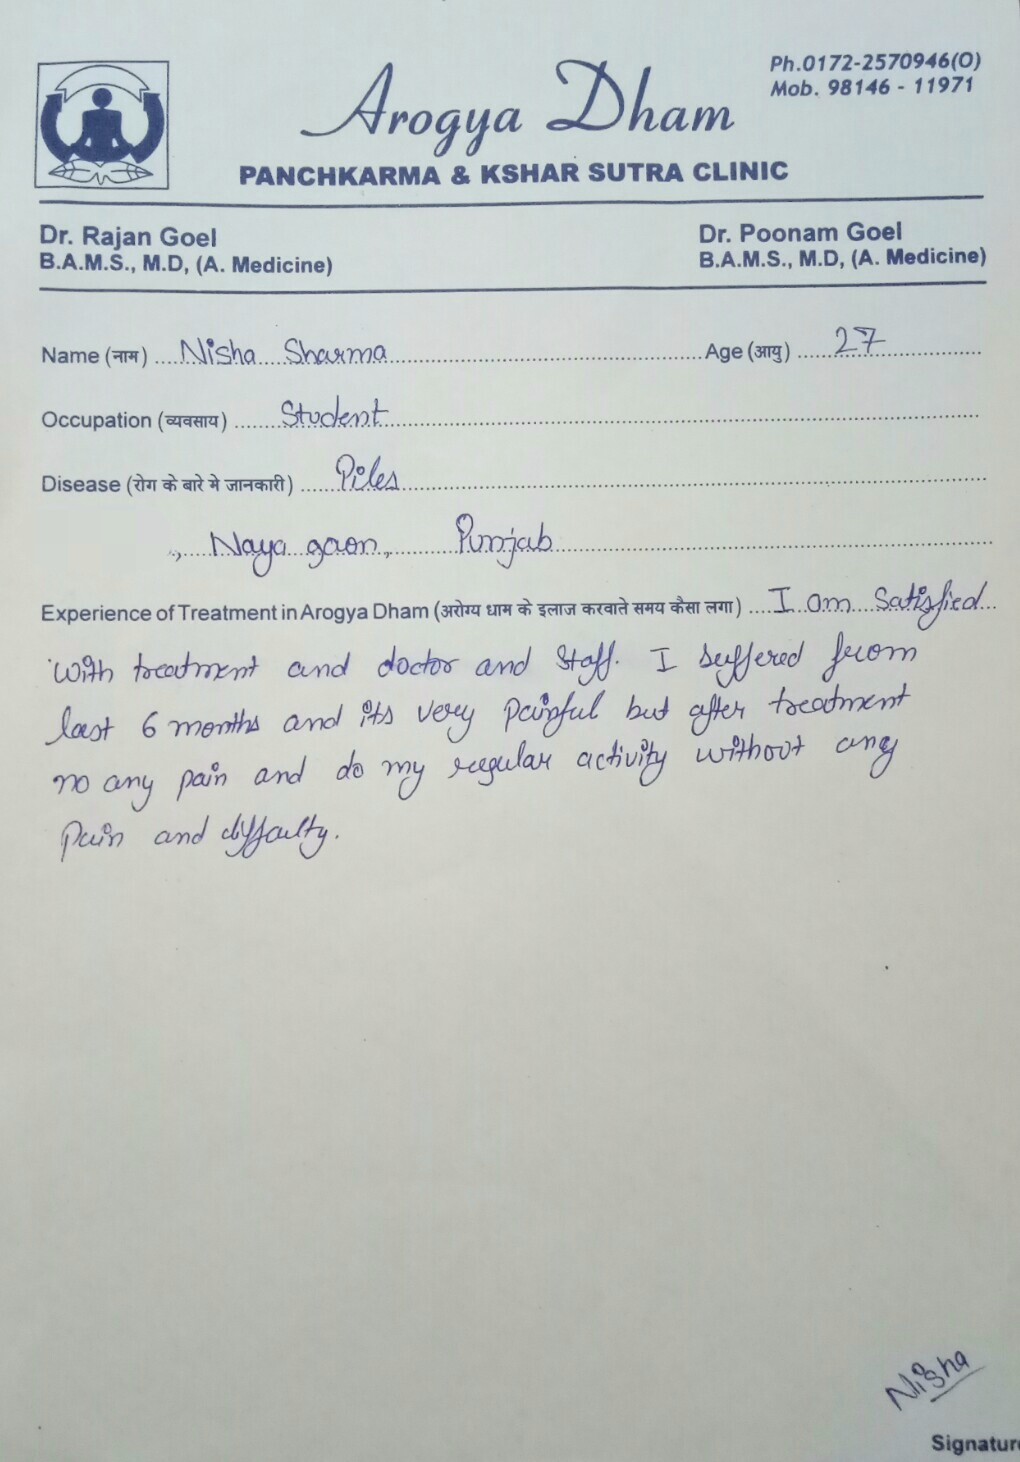 Ph.0172-2570946(O)
Mob. 98146 - 11971
Arogya Dham
PANCHKARMA & KSHAR SUTRA CLINIC
Dr. Rajan Goel
B.A.M.S., M.D, (A. Medicine)
Dr. Poonam Goel
B.A.M.S., M.D, (A. Medicine)
Name (नाम) Nisha Sharma Age (आयु) 27
Occupation (व्यवसाय) Student
Disease (रोग के बारे मे जानकारी) Piles
Naya gaon, Punjab
Experience of Treatment in Arogya Dham (अरोग्य धाम के इलाज करवाते समय कैसा लगा) I am Satisfied
with treatment and doctor and Staff. I suffered from
last 6 months and its very painful but after treatment
no any pain and do my regular activity without any
pain and diffaulty.
Nisha
Signature